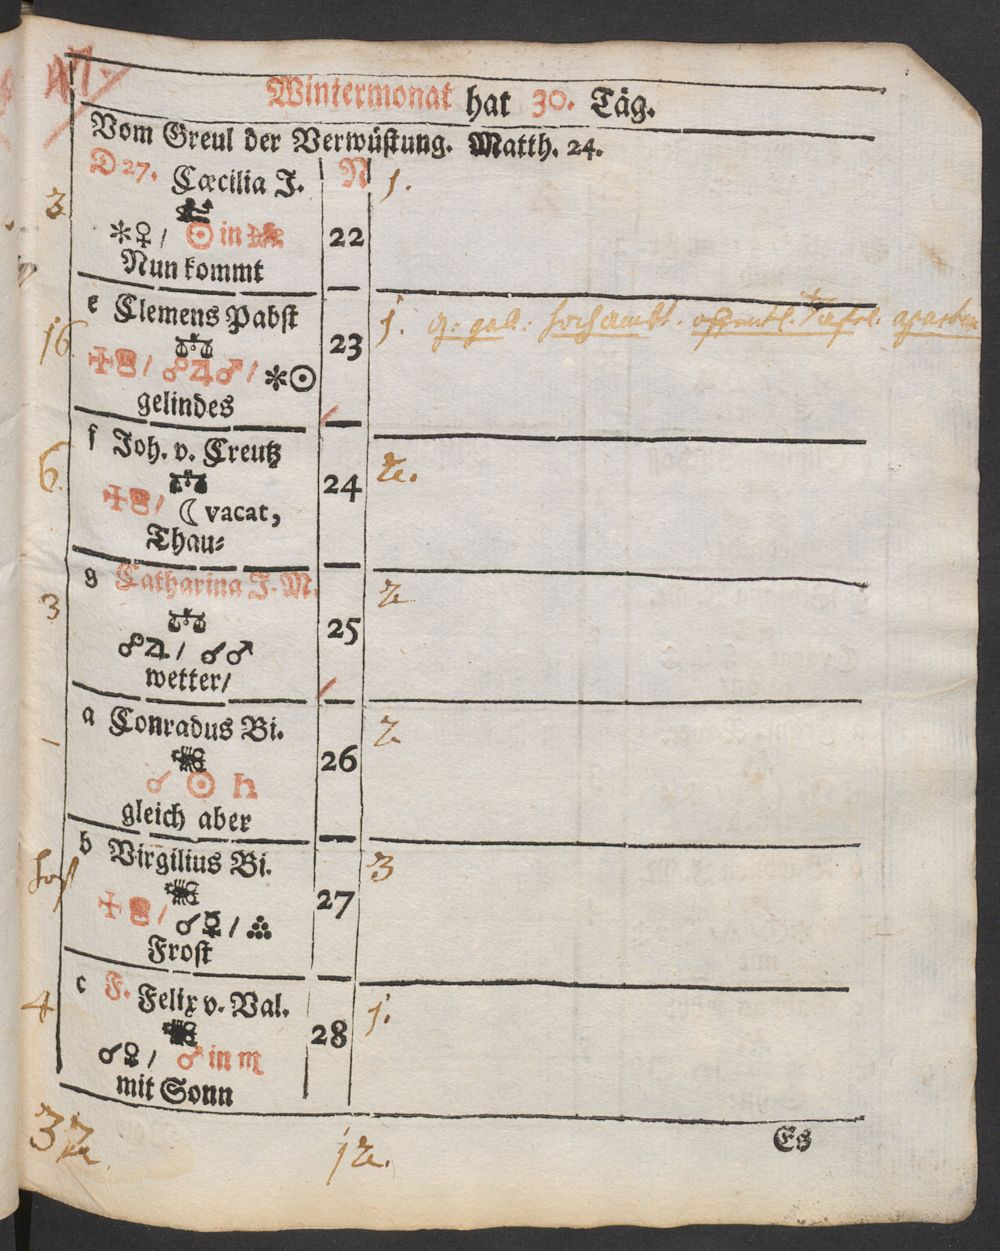 47.
Wintermonat hat 30. Täg.
Vom Greul der Verwüstung. Matth. 24.
D 27. Cæcilia J. N 1.
3
⚹♀/ ☉ in 22
Nun kommt
e Clemens Pabst
16 23 1. hochambt. offentl. Tafel.
/ ☍♃♂/ ⚹☉
gelindes
f Joh. v. Creutz
6. 24 2.
/ ☾ vacat,
Thau⸗
g Catharina J. M.
3 25 2
☍♃/ ☌♂
wetter/
a Conradus Bi.
– 26 2
☌ ☉ ♄
gleich aber
b Virgilius Bi.
27 3
/ ☌☿/
Frost
c F. Felix v. Val.
4 28 1.
☌♀/ ♂ in ♏
mit Sonn
Es
32 12.